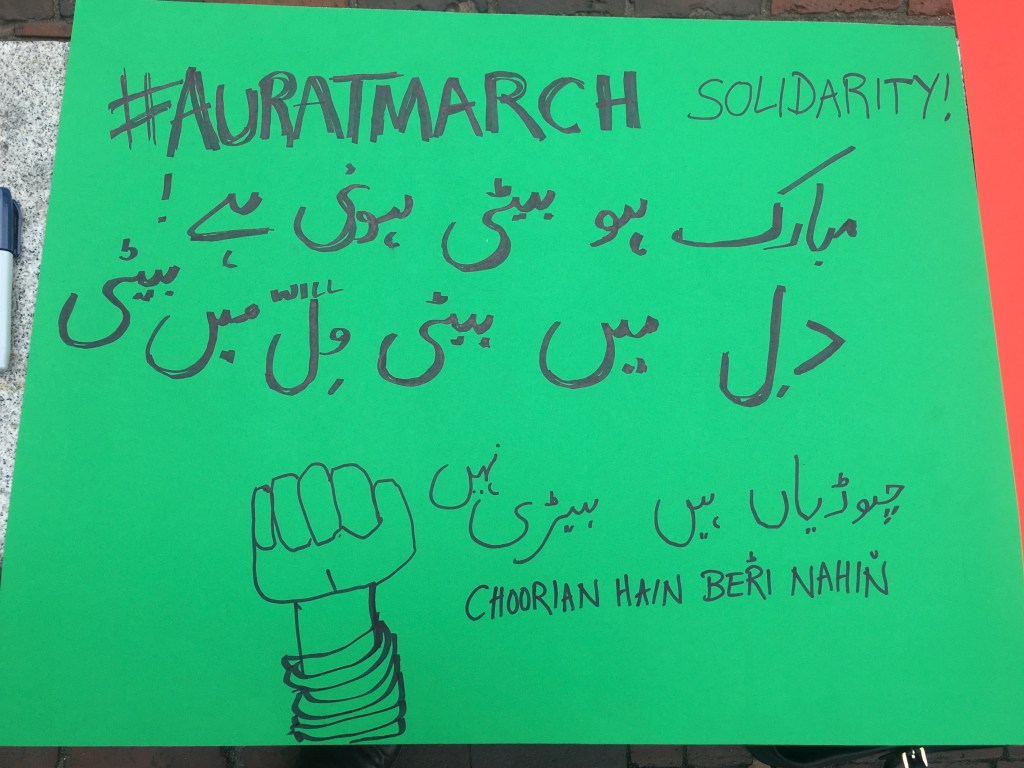 #AURATMARCH SOLIDARITY!
مبارک ہو بیٹی ہوئی ہے !
WILL
دِل میں بیٹی وِل میں بیٹی
چوڑیاں ہیں بیڑی نہیں
CHOORIAN HAIN BEŘI NAHIN̆